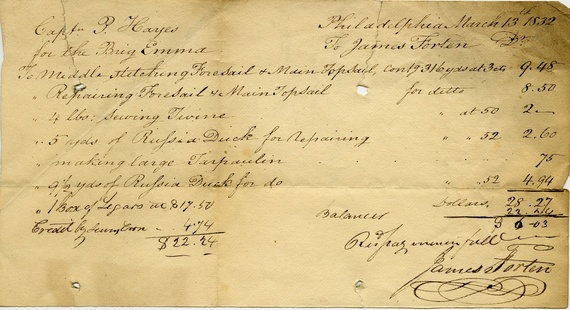 Capt. P. Hayes Philadelphia March 13th 1832
for the Brig Emma To James Forten Dr.
To Middle Stitching Foresail & Main Topsail, cont'g 316 yds at 3cts 9.48
" Repairing Foresail & Main Topsail for ditto 8.50
" 4 lbs: Sewing Twine " at 50 2—
" 5 yds of Russia Duck for Repairing " " 52 2.60
" making large Tarpaulin 75
" 9½ yds of Russia Duck for do " 52 4.94
Dollars, 28.27
" 1 Box of Segars at $17.50 22.24
Credit by - 4.74 Balance $ 6.03
$22.24
Rec'd pay in full
James Forten